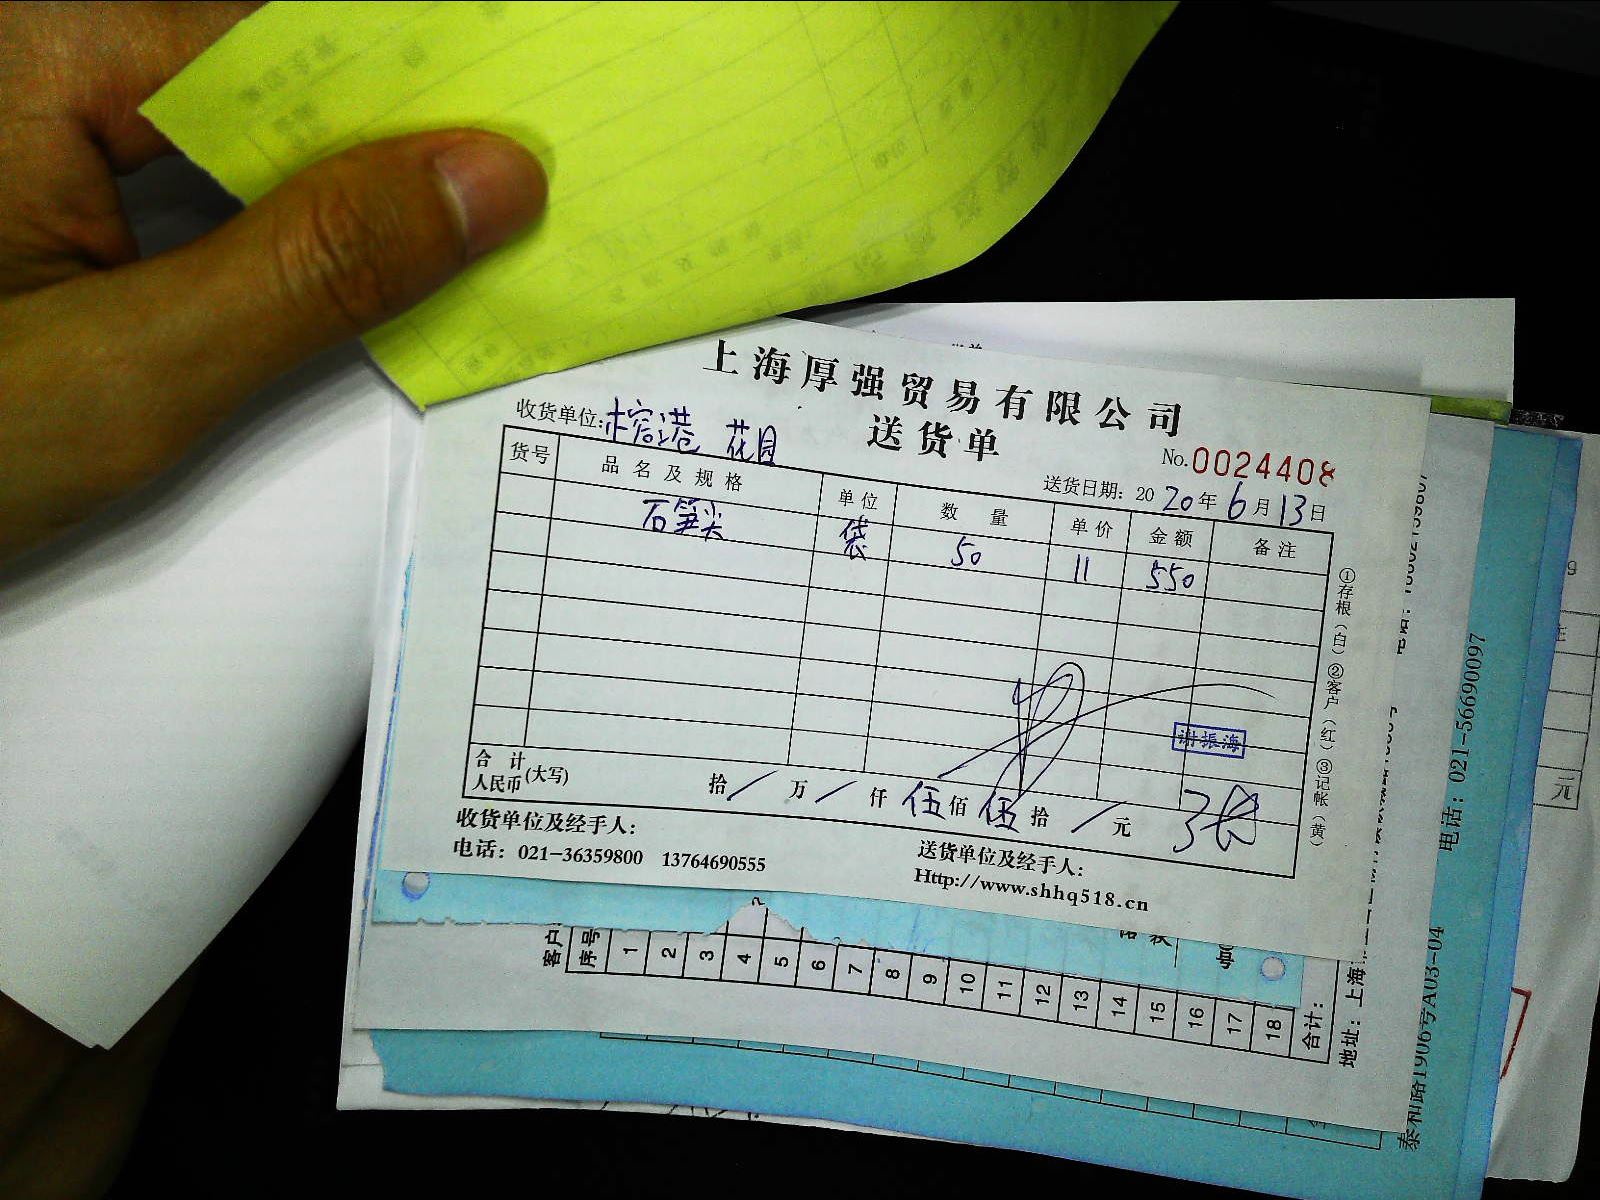 上海厚强贸易有限公司
送货单
收货单位:榕港 花园
No.0024408
送货日期: 2020年6月13日
货号 品名及规格 单位 数量 单价 金额 备注
石笋尖 袋 50 11 550
谢振海
合计人民币(大写) 拾/万/仟伍佰伍拾/元
收货单位及经手人:
送货单位及经手人:
电话: 021-36359800 13764690555
Http://www.shhq518.cn
①存根(白)②客户(红)③记帐(黄)
客户
序号 1 2 3 4 5 6 7 8 9 10 11 12 13 14 15 16 17 18 合计:
地址: 上海
泰和路1906号A03-04
电话: 021-56690097
元